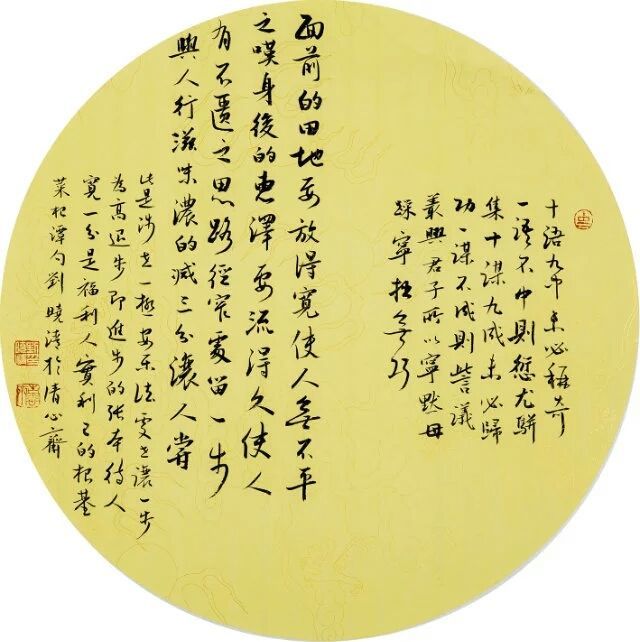 十語九中未必稱奇
一語不中則愆尤駢
集十謀九成未必歸
功一謀不成則訾議
叢興君子所以寧默毋
躁寧拙無巧
面前的田地要放得寬使人無不平
之嘆身後的惠澤要流得久使人
有不匱之思路徑窄處留一步
與人行滋味濃的減三分讓人嘗
此是涉世一極安樂法處世讓一步
為高退步即進步的張本待人
寬一分是福利人實利己的根基
菜根譚句劉曉於清心齋